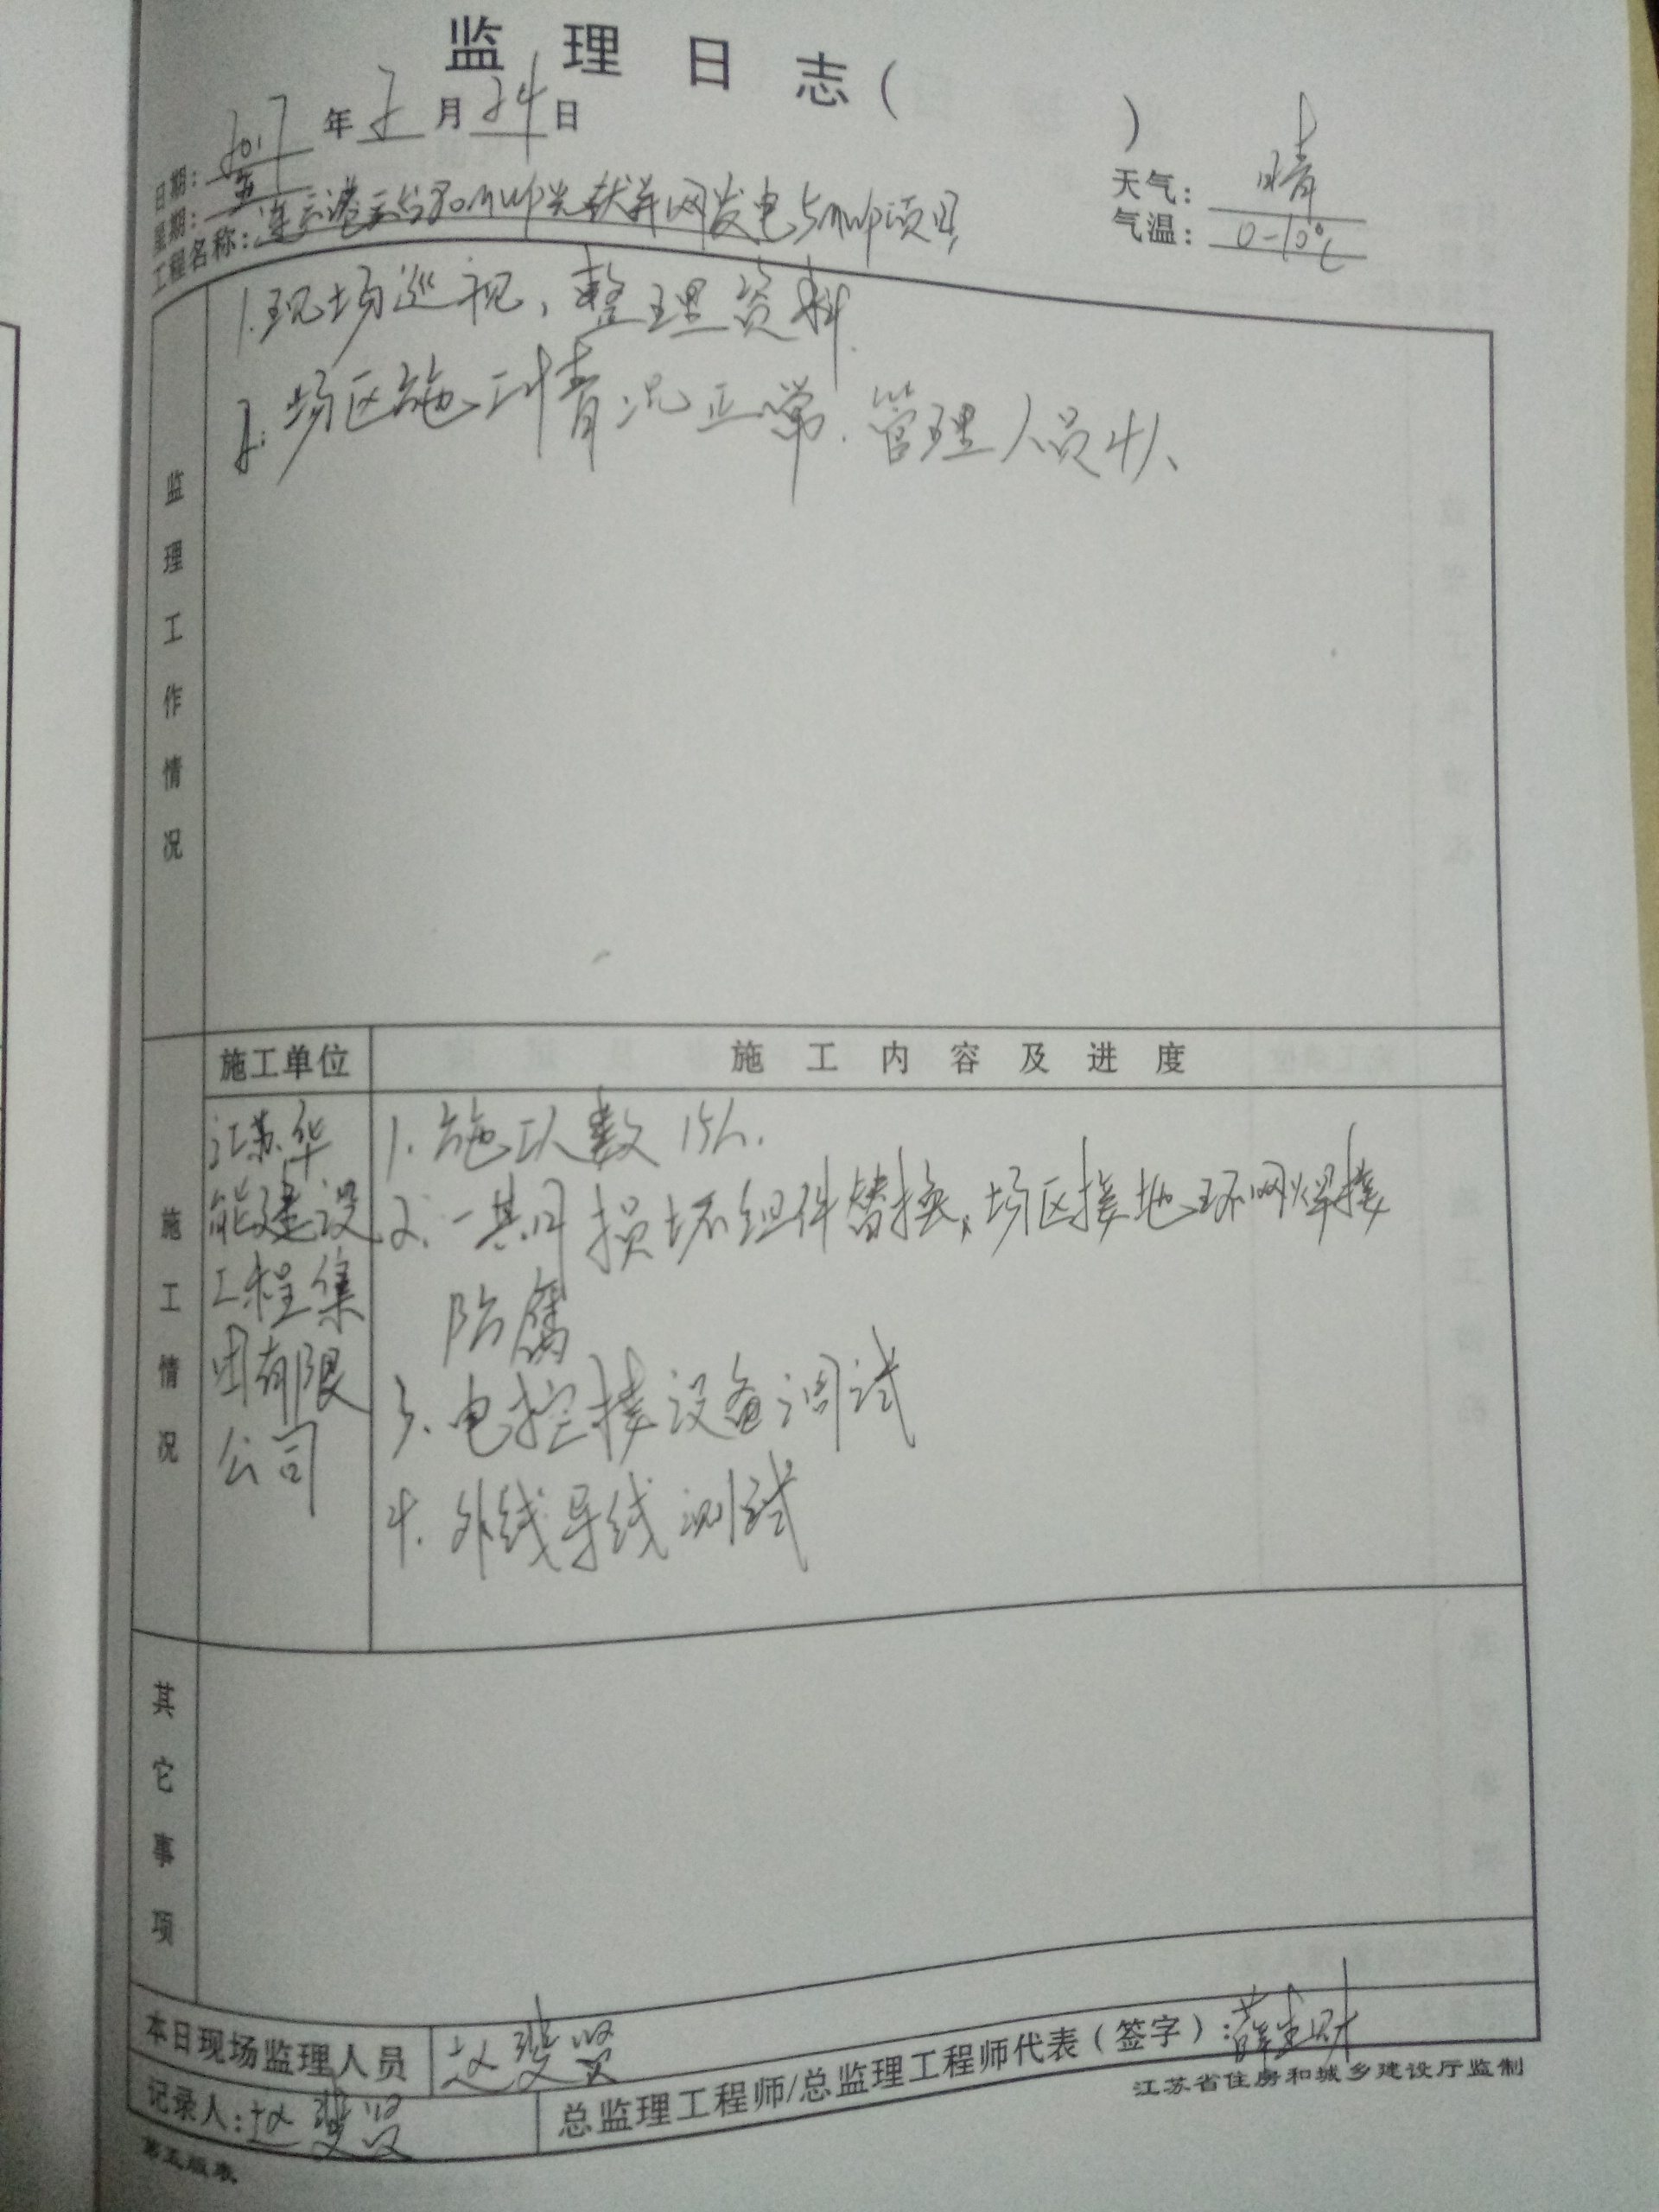 监理日志( )
日期:2017年2月24日
星期:五
天气:晴
气温:0-10℃
工程名称:连云港云台30mwp光伏并网发电5mwp项目
监理工作情况
1.现场巡视,整理资料.
2.场区施工情况正常.管理人员4人、
施工情况
施工单位 施工内容及进度
江苏华
能建设
工程集
团有限
公司
1.施工人数15人.
2.一期损坏组件替换、场区接地环网焊接
防腐
3.电控楼设备调试
4.外线导线测试
其它事项
本日现场监理人员 赵
记录人:赵
总监理工程师/总监理工程师代表(签字):薛
江苏省住房和城乡建设厅监制
第五版表